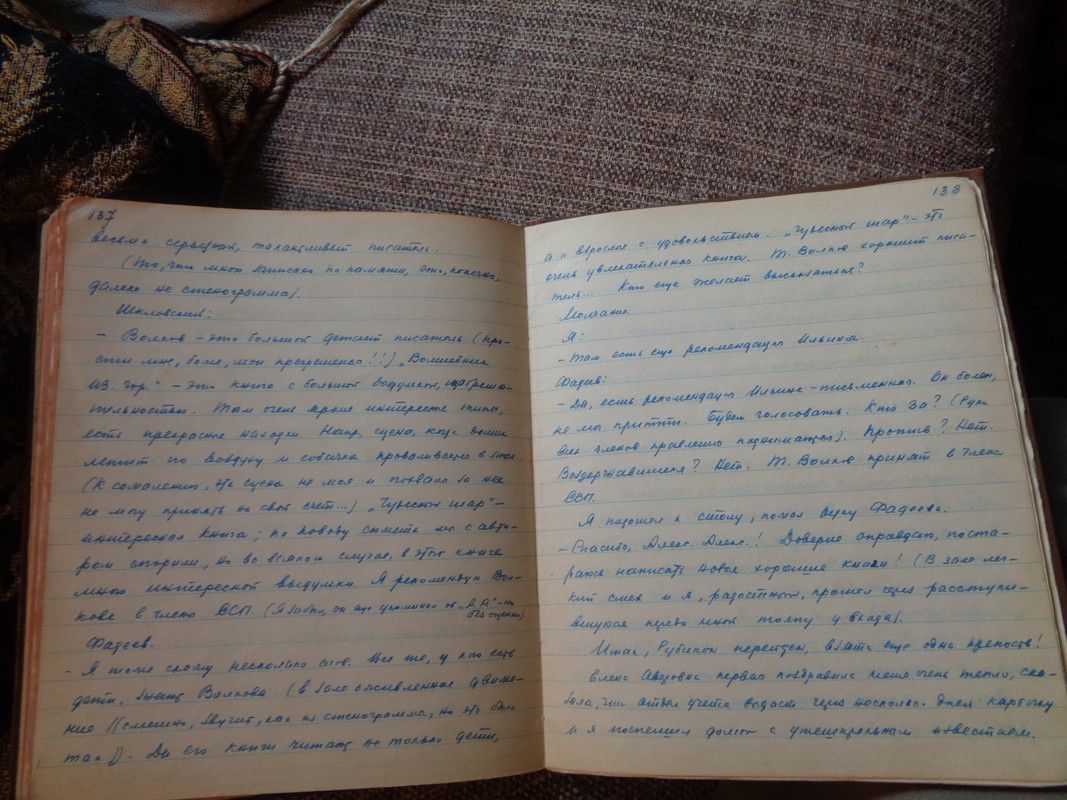 137
весьма серьезный, талантливый писатель.
(То, что мною записано по памяти, это, конечно,
далеко не стенограмма).
Шкловский:
– Волков – это большой детский писатель (про-
сти мне, боже, мои прегрешения!!) „Волшебник
Из. гор." – это книга с большой выдумкой,
тельностью. Там очень яркие интересные типы,
есть прекрасные находки. Напр, сцена, когда домик
летит по воздуху и собачка проваливается в люк...
(К сожалению, эта сцена не моя и похвалу за нее
не могу принять на свой счет...) „Чудесный шар" –
интересная книга; по поводу сюжета мы с авто-
ром спорили, но во всяком случае, в этой книге
много интересной выдумки. Я рекомендую Вол-
кова в члены ССП. (Я забыл, он еще упоминал об „А.А." – но
без оценки)
Фадеев.
– Я тоже скажу несколько слов. Все те, у кого есть
дети, знают Волкова (в зале оживленное движе-
ние ((смешно, звучит, как из стенограммы, но это было
так)). Да его книги читают не только дети,
138
а и взрослые с удовольствием. „Чудесный шар" – это
очень увлекательная книга. Т. Волков хороший писа-
тель... Кто еще желает высказаться?
Молчание.
Я:
– Там есть еще рекомендация Ильина.
Фадеев:
– Да, есть рекомендация Ильина – письменная. Он болен,
не мог притти. Будем голосовать. Кто за? (Руки
всех членов правления поднимаются). Против? Нет.
Воздержавшиеся? Нет. Т. Волков принят в члены
ССП.
Я подошел к столу, пожал руку Фадееву.
– Спасибо, Алекс. Алекс.! Доверие оправдаю, поста-
раюсь написать новые хорошие книги! (В зале лег-
кий смех и я, радостный, прошел через расступи-
вшуюся передо мной толпу у входа).
Итак, Рубикон перейден, взята еще одна крепость!
Елена первая поздравила меня очень тепло, ска-
зала, что отдел учета выдаст через несколько дней карточку
и я поспешил домой с утешительным известием.